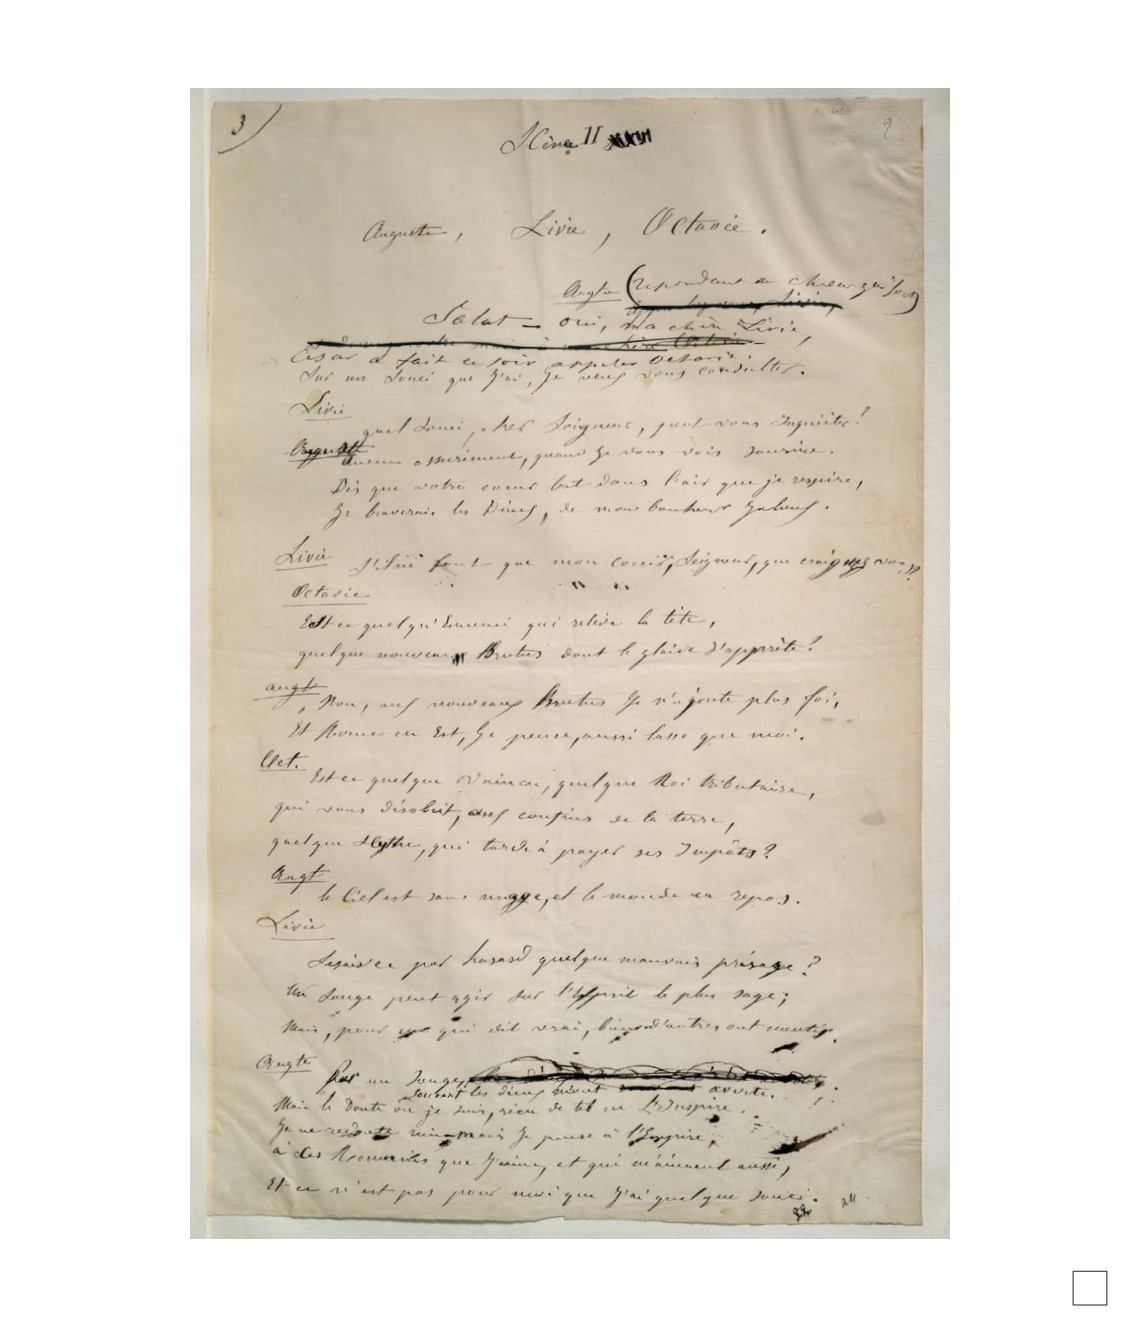 3)
2
Scène II
Auguste, Livie, Octavie.
Augte (répondant au chœur qui sort)
Salut — oui, ma chère Livie,
César a fait ce soir appeler Octavie.
Sur un Souci que J'ai, Je veux vous consulter.
Livie
quel Souci, cher Seigneur, peut vous Inquiéter?
Auguste
Aucun assurément, quand Je vous vois sourire.
Dès que votre cœur bat dans l'air que je respire,
Je braverais les Dieux, de mon bonheur Jaloux.
Livie
S'ils font que mon cœur, Seigneur, que craignez vous?
Octavie
Est ce quelqu'Ennemi qui relève la tête,
quelque nouveau Brutus dont le glaive s'apprête?
augt
Non, aux nouveaux Brutus Je n'ajoute plus foi,
Et Rome en Est, Je pense, aussi lasse que moi.
Oct.
Est ce quelque Vaincu, quelque Roi tributaire,
qui vous désobéit, aux confins de la terre,
quelque Scythe, qui tarde à payer ses Impôts?
Augt
le Ciel est sans nuage, et le monde en repos.
Livie
Serais ce par hasard quelque mauvais présage?
Un Songe peut agir sur l'Esprit le plus sage;
Mais, pour un qui dit vrai, bien d'autres ont menti.
Augte
Par un Songe, souvent les dieux m'ont averti.
Mais le Doute où je suis, rien de tel ne L'Inspire.
Je ne redoute rien mais Je pense à l'Empire,
à Ces Romains que J'aime, et qui m'aiment aussi,
Et ce n'est pas pour moi que J'ai quelque souci.
24